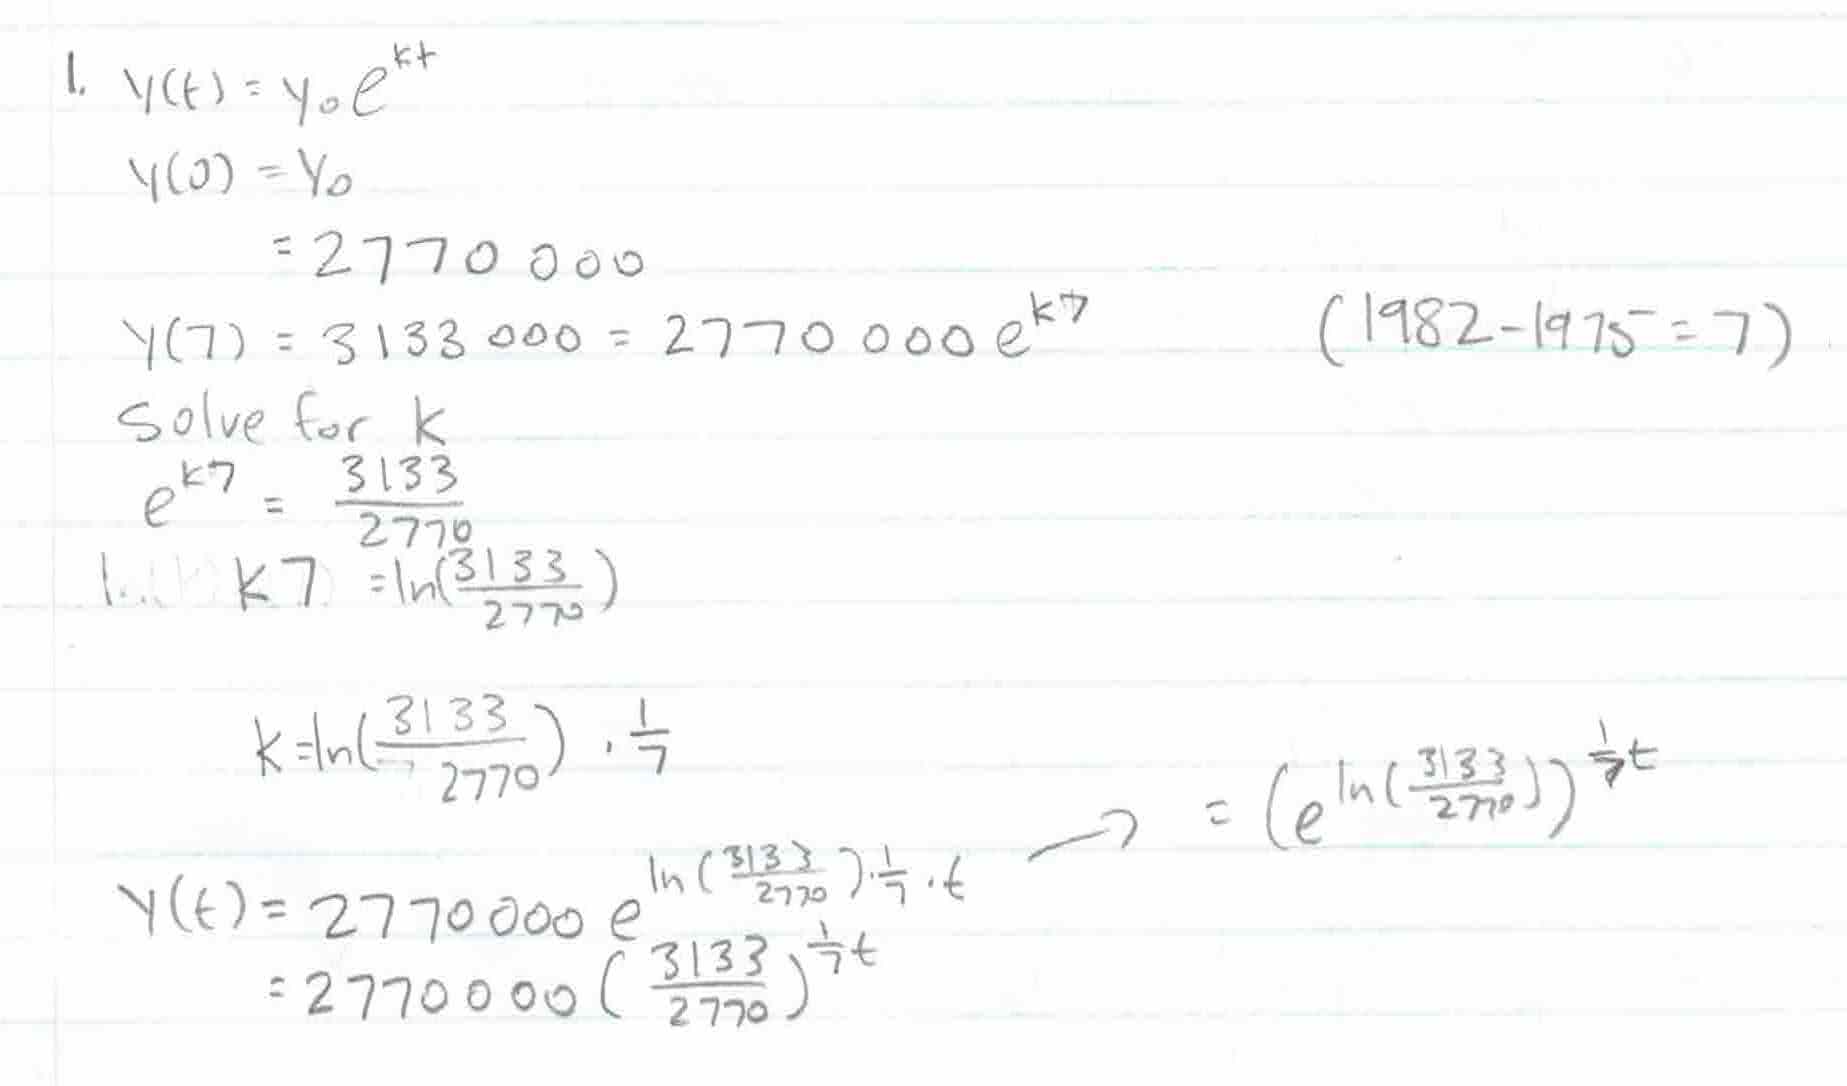 1. y(t) = y₀e^{kt}
y(0) = y₀
= 2770 000
y(7) = 3133 000 = 2770 000 e^{k7} (1982-1975 = 7)
Solve for k
e^{k7} = 3133/2770
k7 = ln(3133/2770)
k=ln(3133/2770) · 1/7
y(t) = 2770000 e^{ln(3133/2770)·1/7·t} → = (e^{ln(3133/2770)})^{1/7 t}
= 2770000 (3133/2770)^{1/7 t}